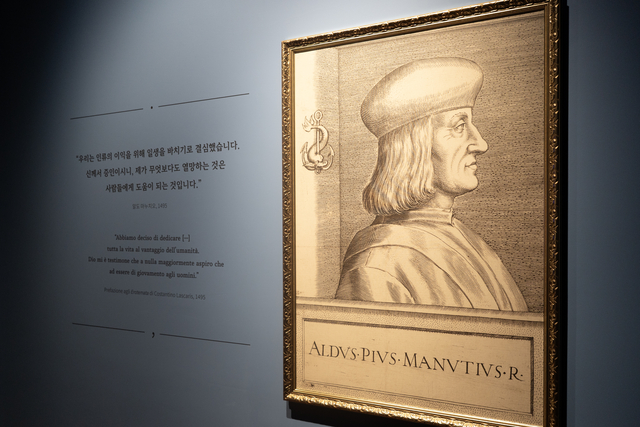 "우리는 인류의 이익을 위해 일생을 바치기로 결심했습니다.
신께서 증인이시니, 제가 무엇보다도 열망하는 것은
사람들에게 도움이 되는 것입니다."
1495
"Abbiamo deciso di dedicare [—]
tutta la vita al vantaggio dell'umanità.
Dio mi è testimone che a nulla maggiormente aspiro che
ad essere di giovamento agli uomini."
Prefazione agli Erotemata di Costantino Lascaris, 1495
ALDVS·PIVS·MANVTIVS·R·